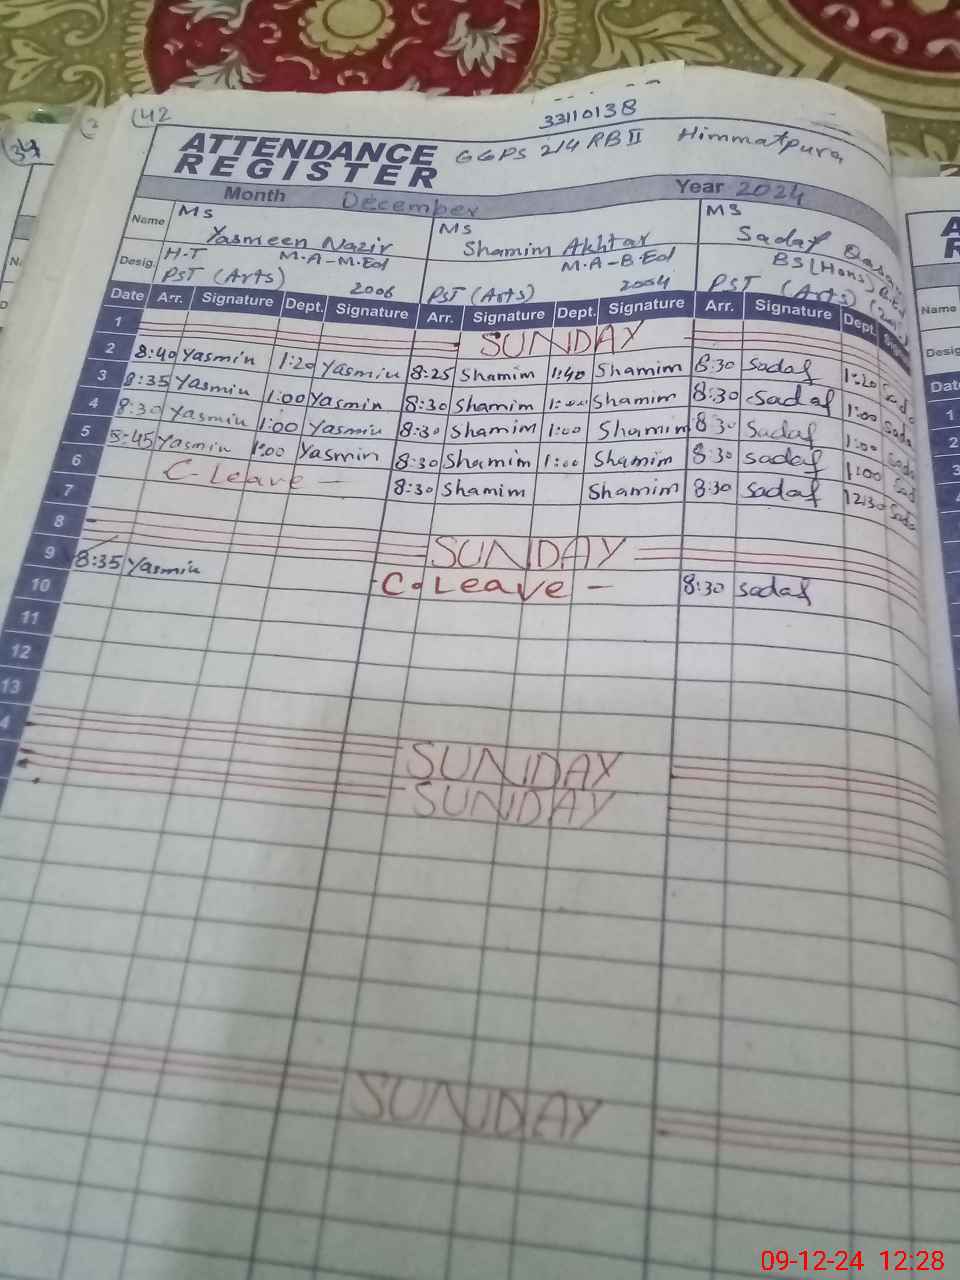 42
33110138
ATTENDANCE REGISTER GGPS 214 RB II Himmatpura
Month December Year 2024
Name Ms Yasmeen Nazir Ms Shamim Akhtar Ms Sadaf
Desig. H.T M.A-M.Ed M.A-B.Ed BS(Hons)
PST (Arts) 2006 PST (Arts) 2004 PST (Arts)
Date Arr. Signature Dept. Signature Arr. Signature Dept. Signature Arr. Signature Dept.
1 SUNDAY
2 8:40 Yasmin 1:20 Yasmin 8:25 Shamim 1:40 Shamim 8:30 Sadaf 1:20
3 8:35 Yasmin 1:00 Yasmin 8:30 Shamim 1:00 Shamim 8:30 Sadaf 1:00
4 8:30 Yasmin 1:00 Yasmin 8:30 Shamim 1:00 Shamim 8:30 Sadaf 1:00
5 8:45 Yasmin 1:00 Yasmin 8:30 Shamim 1:00 Shamim 8:30 Sadaf 1:00
6 C-Leave - 8:30 Shamim Shamim 8:30 Sadaf 12:30
7
8 SUNDAY
9 8:35 Yasmin C.Leave - 8:30 Sadaf
10
11
12
13
4
SUNDAY
SUNDAY
SUNDAY
34
Name
Desig
Date
1
2
3
09-12-24 12:28